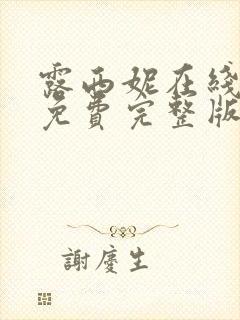 露西妮在綫
免費完整版
謝慶生